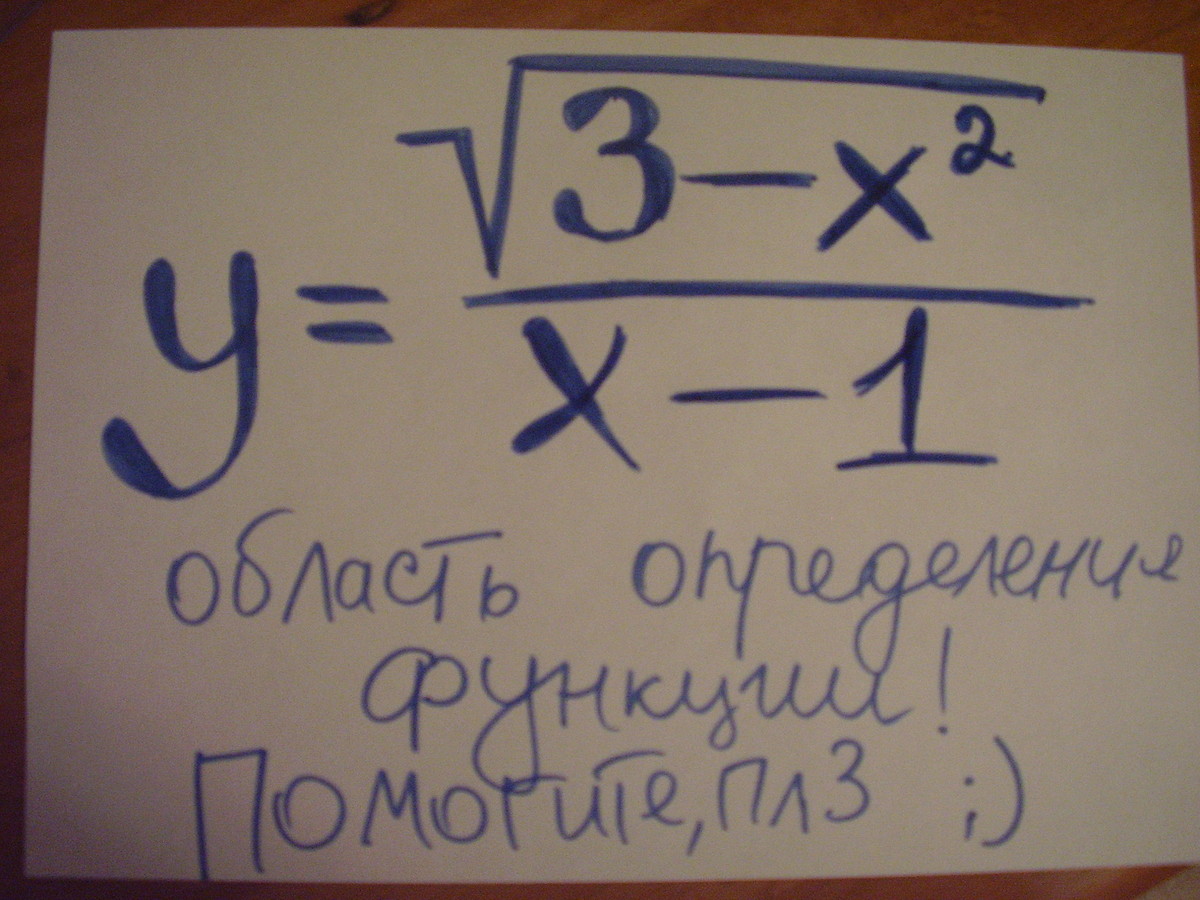 y = √(3 − x²) / (x − 1)
область определения
функции!
Помогите, плз ;)